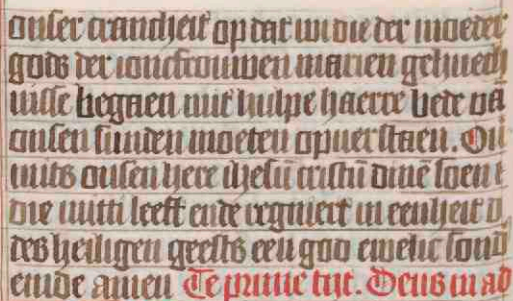 onser crancheit op dat wi die der moeder
gods der ioncfrouwen marien gehuech
nisse begaen mit hulpe haerre bede va
onsen sunden moeten opuerstaen. Ou
mits onsen here ihesū cristū dinē soen
die mitti leeft ende regniert in eenheit d
des heiligen geests een god ewelic sond
einde amen Te prime tijt. Deus in ad